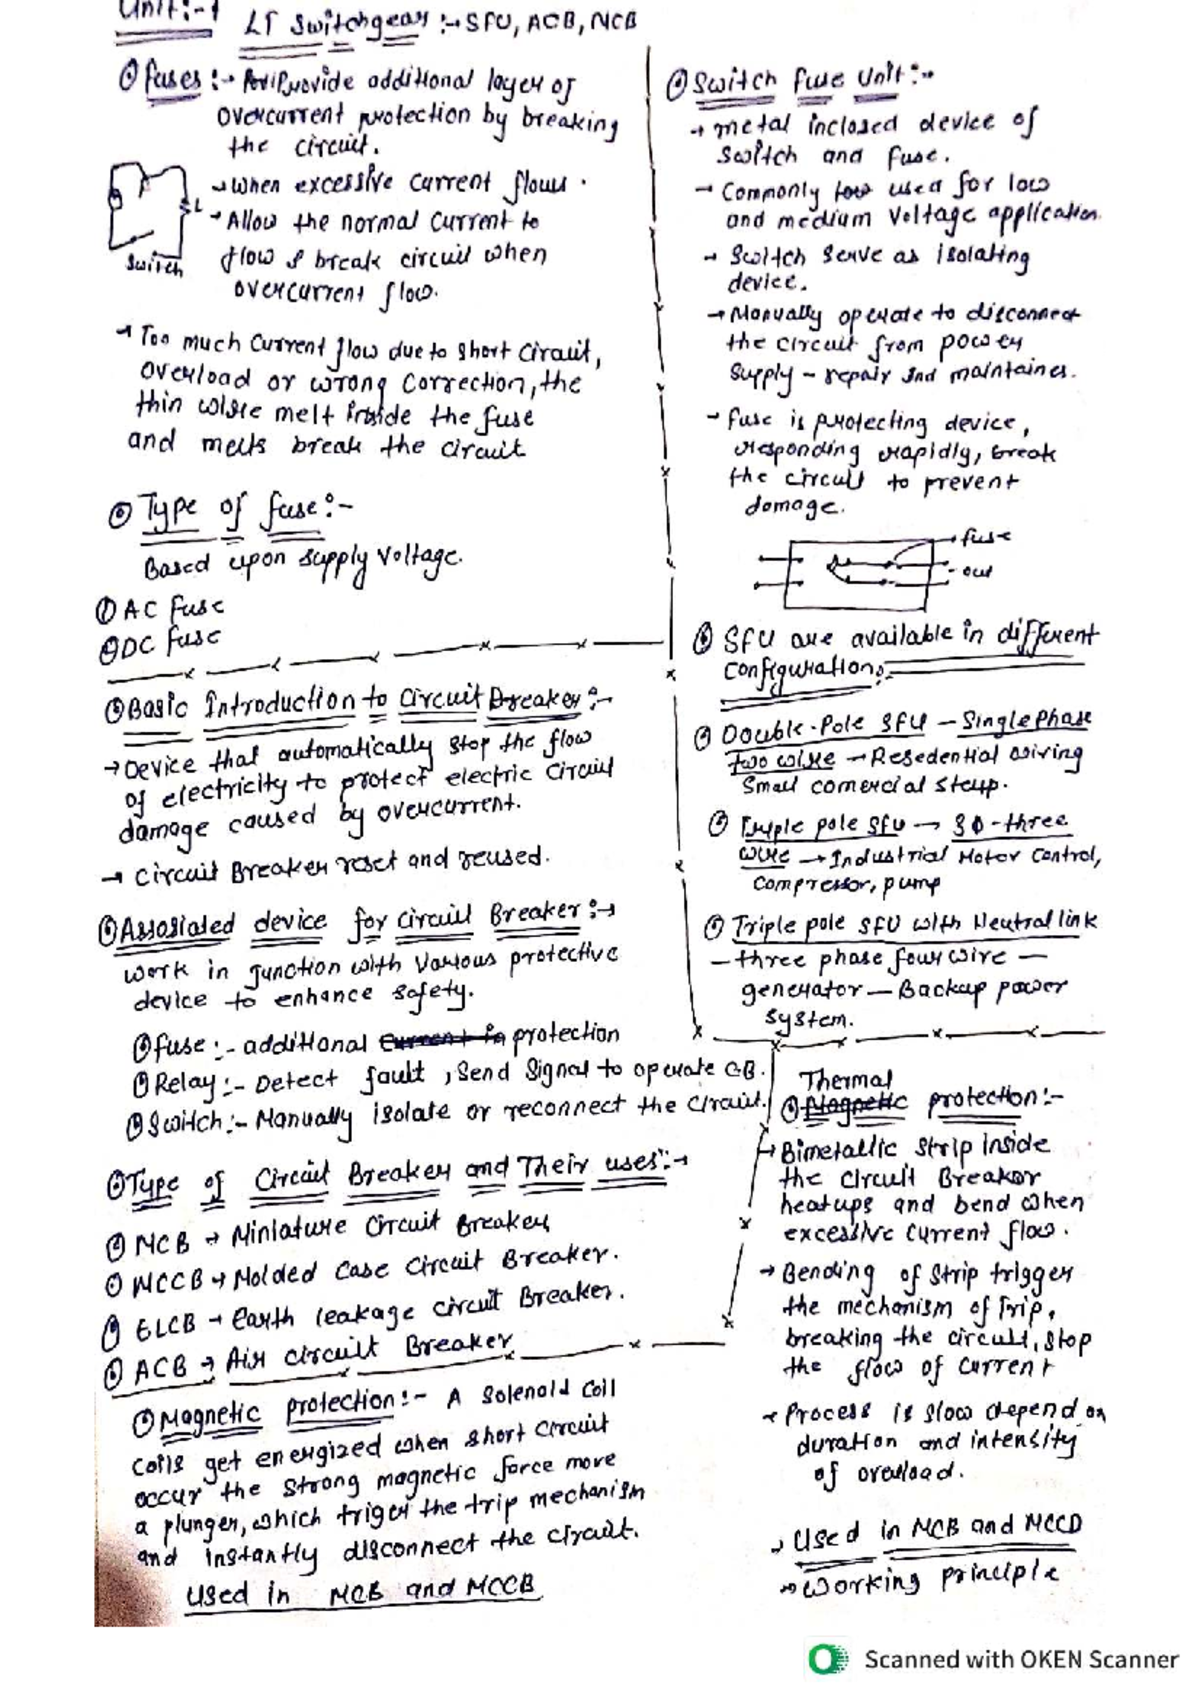 Unit:-1
LT Switchgear :→ SFU, ACB, MCB
Fuses :→ Provide additional layer of
overcurrent protection by breaking
the circuit.
→ When excessive current flows.
→ Allow the normal current to
flow & break circuit when
overcurrent flow.
L
Switch
→ Too much current flow due to short circuit,
overload or wrong correction, the
thin wire melt inside the fuse
and melts break the circuit
Type of fuse:-
Based upon supply voltage.
① AC fuse
② DC fuse
Basic Introduction to Circuit Breaker:-
→ Device that automatically stop the flow
of electricity to protect electric circuit
damage caused by overcurrent.
→ Circuit Breaker reset and reused.
Assosiated device for circuit Breaker:→
work in junction with various protective
device to enhance safety.
fuse:- additional Current in protection
Relay:- Detect fault, Send Signal to operate CB.
Switch:- Manually isolate or reconnect the circuit.
Type of Circuit Breaker and Their uses:→
MCB → Miniature Circuit Breaker
MCCB → Molded Case Circuit Breaker.
ELCB → Earth leakage circuit Breaker.
ACB → Air circuit Breaker
Magnetic protection:- A Solenoid Coil
coils get energized when short circuit
occur the strong magnetic force move
a plunger, which triger the trip mechanism
and instantly disconnect the circuit.
Used in MCB and MCCB
Switch Fuse Unit:→
→ metal inclosed device of
Switch and fuse.
→ Commonly low used for low
and medium voltage application.
→ Switch Serve as isolating
device.
→ Manually operate to disconnect
the circuit from power
supply - repair and maintaines.
→ fuse is protecting device,
responding rapidly, break
the circuit to prevent
damage.
fuse
out
SFU are available in different
configuration:
Double-Pole SFU - Single Phase
two wire → Resedential wiring
Small comercial steup.
Triple pole SFU → 3Φ-three
wire → Industrial Motor Control,
Compressor, pump
Triple pole SFU with Neutral link
- three phase four wire -
generator - Backup power
System.
Thermal
Magnetic protection:-
→ Bimetallic strip inside
the circuit Breaker
heatups and bend when
excessive current flow.
→ Bending of strip trigger
the mechanism of Trip,
breaking the circuit, stop
the flow of current
→ Process is slow depend on
duration and intensity
of overload.
→ Used in MCB and MCCD
→ Working principle
Scanned with OKEN Scanner